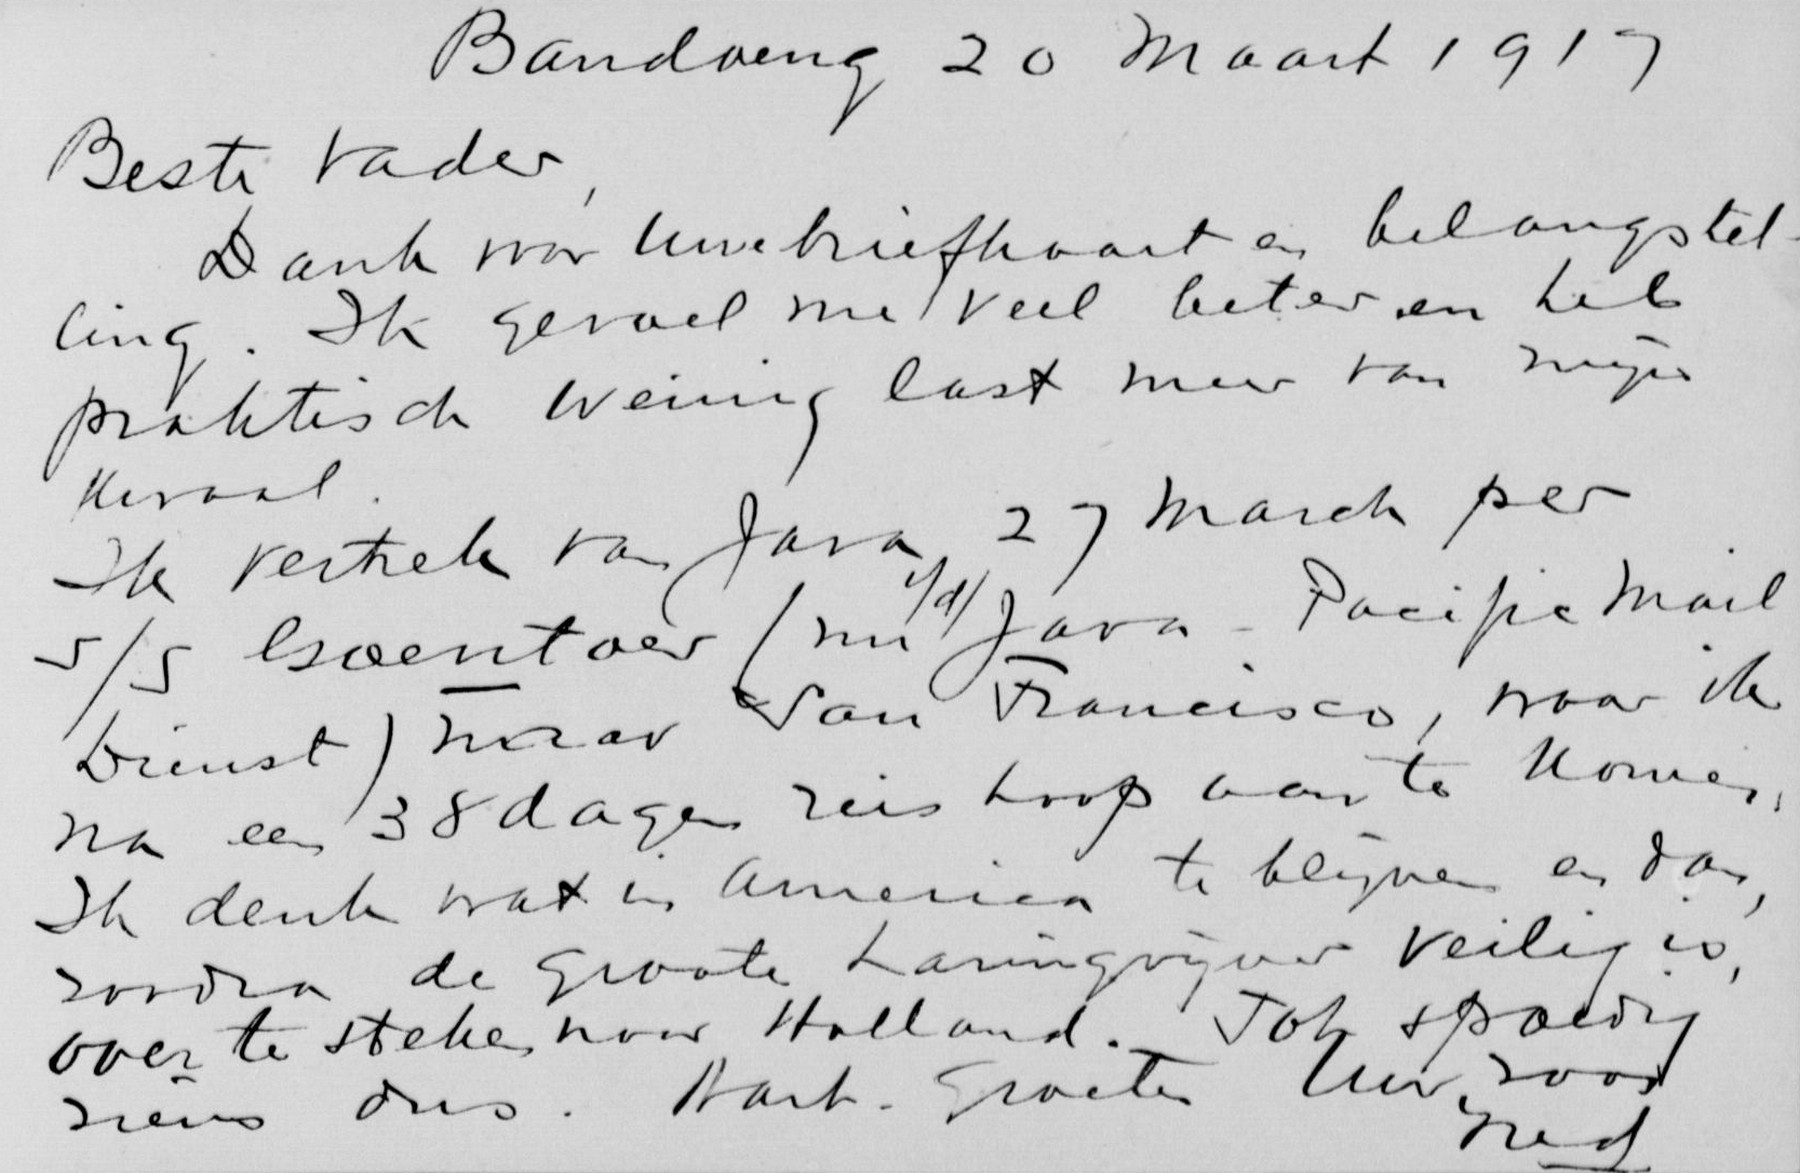 Bandoeng 20 Maart 1917
Beste Vader,
Dank voor Uwe briefkaart en belangstel-
ling. Ik gevoel me veel beter en heb
praktisch weinig last meer van mijn
kwaal.
Ik vertrek van Java 27 March per
s/s Goentoer (nu i/d/ Java-Pacific Mail
Dienst) naar San Francisco, waar ik
na een 38 dagen reis hoop aan te komen.
Ik denk wat in America te blijven en dan,
zoodra de groote haringvijver veilig is,
over te steken naar Holland. Tot spoedig
ziens dus. Hart. Groeten Uw zoon
Ned